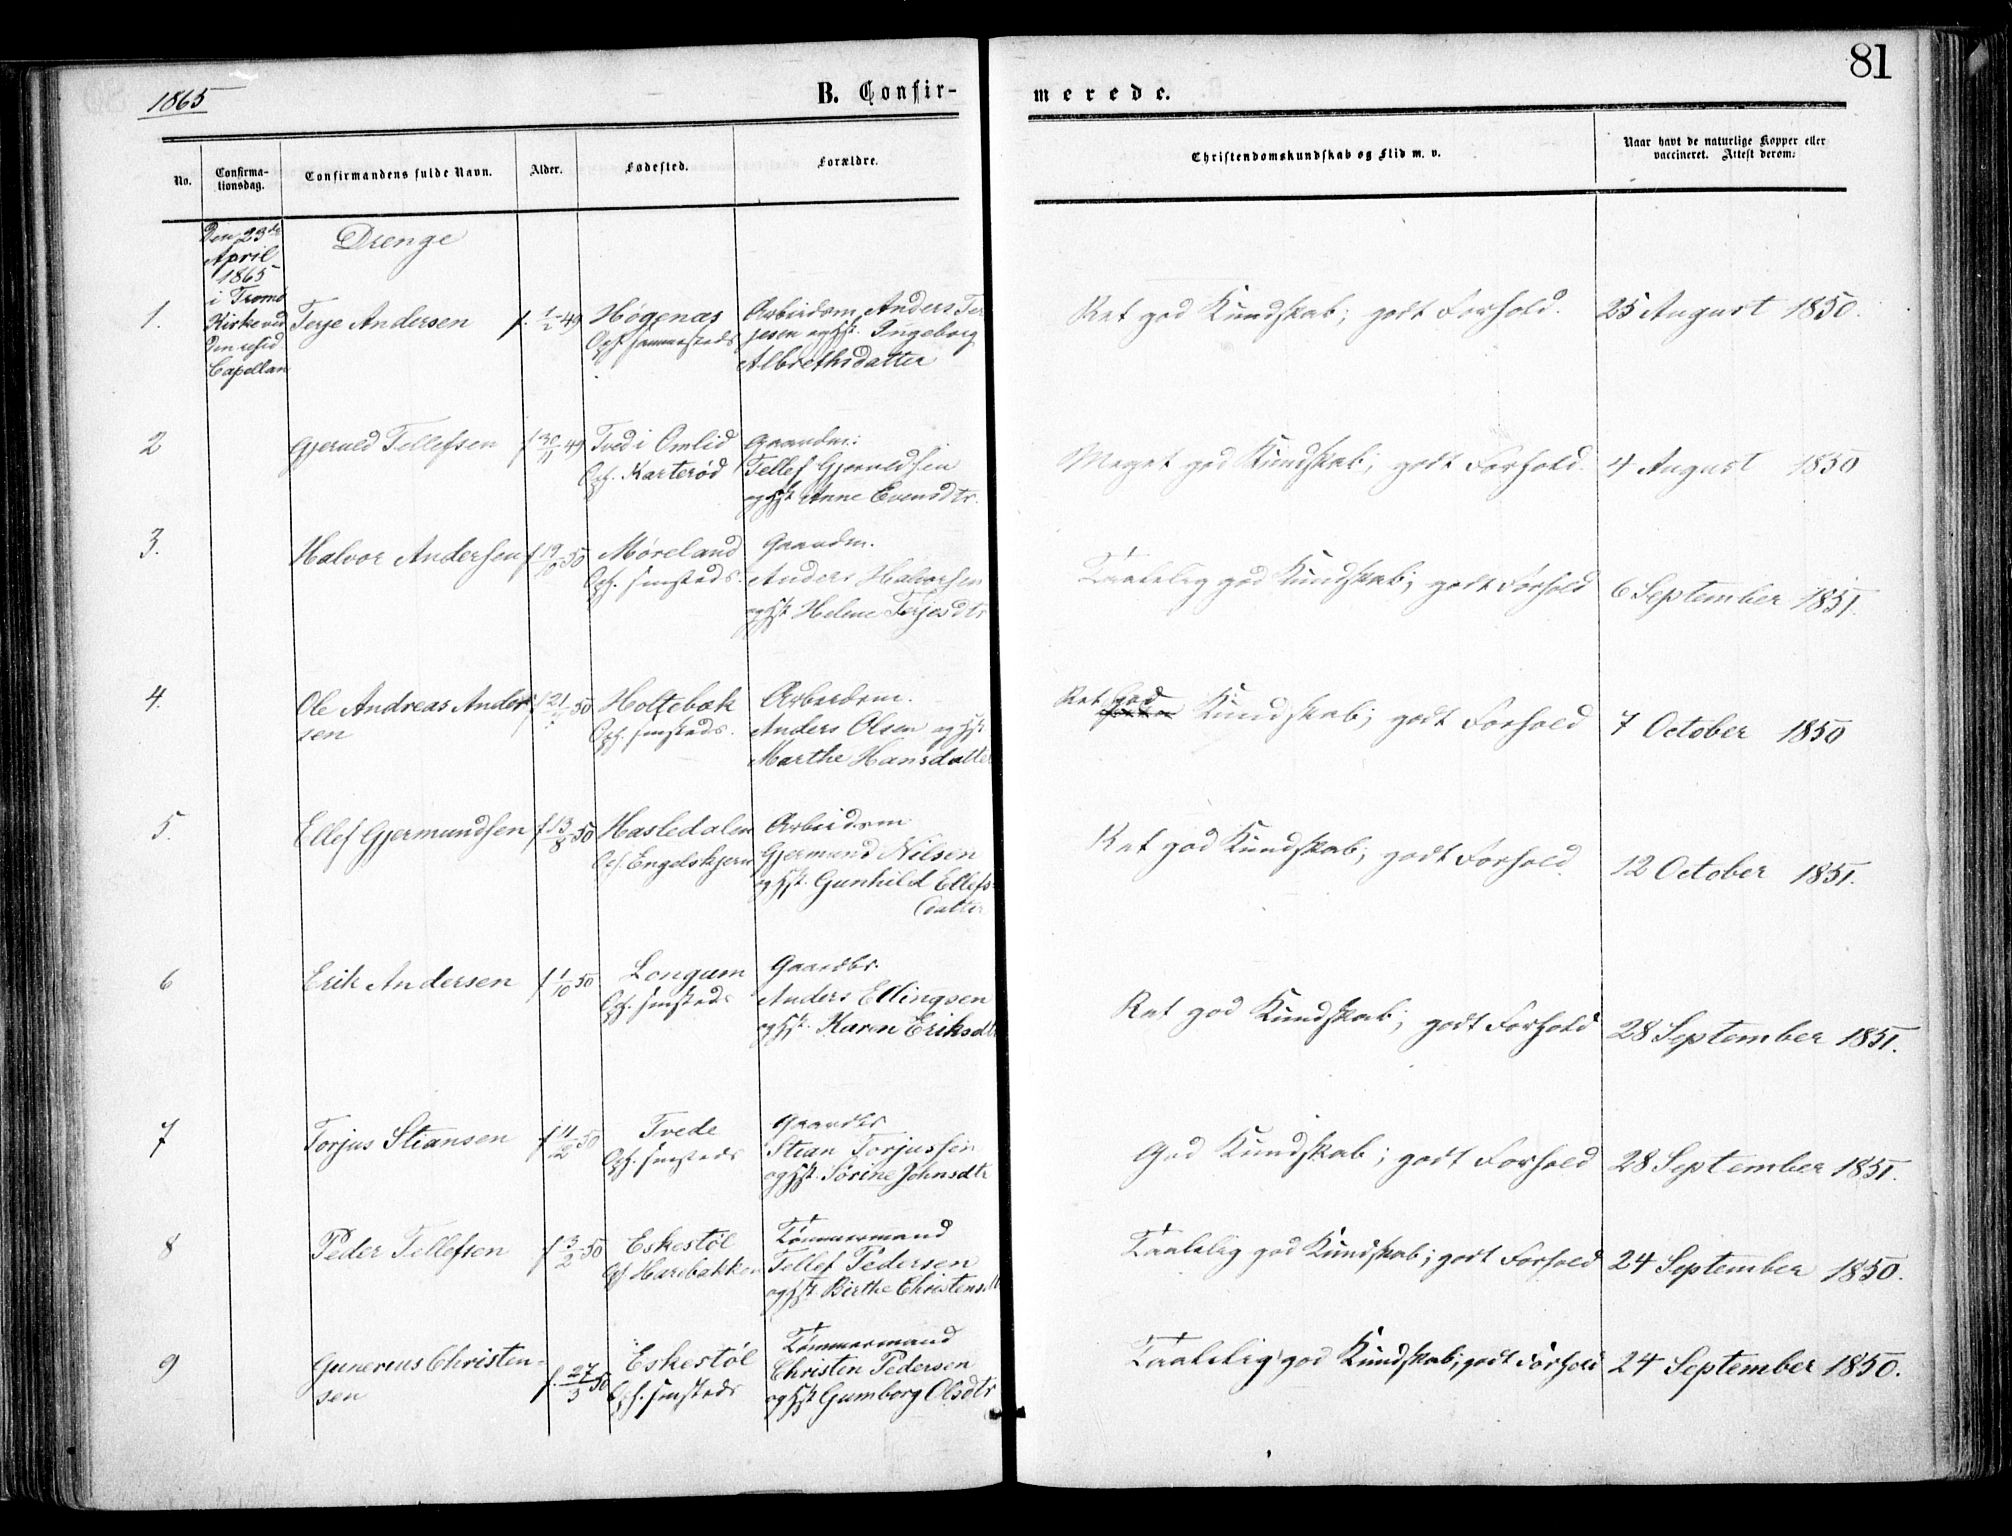 81
1865
B. Confir-
merede.
No.
Confirma-
tionsdag.
Confirmandens fulde Navn.
Alder.
Fødested.
Forældre.
Christendomskundskab og Flid m. v.
Naar havt de naturlige Kopper eller
vaccineret. Attest derom:
Den 23de
April
1865
i Tromø
Kirke ved
den resid
Capellan
Drenge
1.
Terje Andersen
f. 1/2-49
Høgenæs
Oph. sammesteds
Arbeidsm. Anders Ter
jesen og Hst. Ingeborg
Albrethsdatter
Ret god Kundskab; godt Forhold.
25 August 1850.
2
Gjeruld Tellefsen
f 30/11-49
Tved i Omlid
Oph. Karterød
Gaardm:
Tellef Gjeruldsen
og Hst Anne Evensdtr.
Meget god Kundskab; godt Forhold.
4 August 1850
3.
Halvor Andersen
f 19/10-50
Møreland
Oph. smsteds.
Gaardm.
Anders Halvorsen
og Hst Helene Terjesdtr
Taalelig god Kundskab; godt Forhold
6 September 1851.
4.
Ole Andreas Ander
sen
f 21-50
Holtebæk
Oph. smsteds.
Arbeidsm.
Anders Olsen og Hst
Marthe Hansdatter
Ret god
Kundskab; godt Forhold
7 October 1850
5.
Ellef Gjermundsen
f 13/8-50
Hasledalen
Oph. Engelskjern
Arbeidsm
Gjermund Nilsen
og Hst. Gunhild Ellefs
datter
Ret god Kundskab; godt Forhold.
12 October 1851.
6
Erik Andersen
f 1/10-50.
Longum
Oph. smsteds
Gaardbr.
Anders Ellingsen
og Hst. Karen Eriksdtr
Ret god Kundskab; godt Forhold
28 September 1851.
7
Torjus Stiansen
f 11/2-50
Tvede
Oph. smsteds
Gaardbr
Stian Torjussen
og Hst. Sørine Johnsdtr
God Kundskab; godt Forhold
28 September 1851.
8
Peder Tellefsen
f 3/2-50
Eskestøl
Oph Harebakken
Tømmermand
Tellef Pedersen
og Hst. Birthe Christensdtr
Taalelig god Kundskab; godt Forhold
24 September 1850.
9
Gunerius Christen-
sen
f. 27/3 50
Eskestøl
Oph. smsteds
Tømmermand
Christen Pedersen
og Hst Gumborg Olsdtr
Taalelig god Kundskab; godt Forhold
24 September 1850.